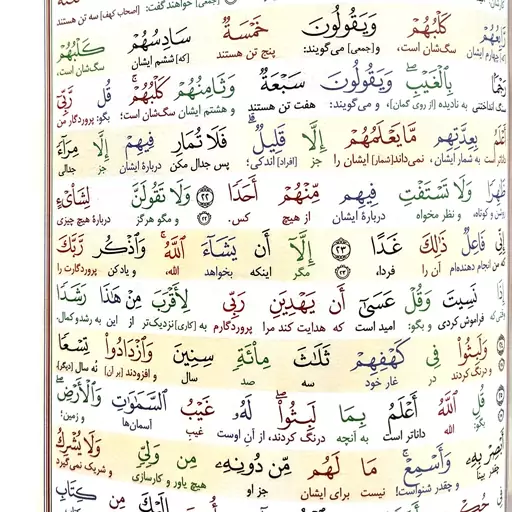 [جمعی] خواهند گفت: [اصحاب کهف] سه تن هستند
رَّابِعُهُمْ كَلْبُهُمْ وَيَقُولُونَ خَمْسَةٌ سَادِسُهُمْ كَلْبُهُمْ
چهارم ایشان سگ‌شان است، و[جمعی] می‌گویند: پنج تن هستند [که] ششم ایشان سگ‌شان است،
رَجْمًا بِالْغَيْبِ وَيَقُولُونَ سَبْعَةٌ وَثَامِنُهُمْ كَلْبُهُمْ قُل رَّبِّي
سنگ انداختنی به نادیده [از روی گمان]، و می‌گویند: هفت تن هستند و هشتم ایشان سگ‌شان است؛ بگو: پروردگار من
أَعْلَمُ بِعِدَّتِهِم مَّا يَعْلَمُهُمْ إِلَّا قَلِيلٌ فَلَا تُمَارِ فِيهِمْ إِلَّا مِرَاءً
داناتر است به شمار ایشان، نمی‌داند [شمار] ایشان را جز [افراد] اندکی؛ پس جدال مکن دربارهٔ ایشان جز جدالی
ظَاهِرًا وَلَا تَسْتَفْتِ فِيهِم مِّنْهُمْ أَحَدًا ﴿٢٢﴾ وَلَا تَقُولَنَّ لِشَايْءٍ
روشن و کوتاه، و نظر مخواه دربارهٔ ایشان از هیچ کس. ﴿۲۲﴾ و مگو هرگز دربارهٔ هیچ چیزی
إِنِّي فَاعِلٌ ذَٰلِكَ غَدًا ﴿٢٣﴾ إِلَّا أَن يَشَاءَ اللَّهُ وَاذْكُر رَّبَّكَ
که من انجام دهنده‌ام آن را فردا، ﴿۲۳﴾ مگر اینکه بخواهد الله، و یاد کن پروردگارت را
إِذَا نَسِيتَ وَقُلْ عَسَىٰ أَن يَهْدِيَنِ رَبِّي لِأَقْرَبَ مِنْ هَٰذَا رَشَدًا
وقتی که فراموش کردی و بگو: امید است که هدایت کند مرا پروردگارم به [کاری] نزدیک‌تر از این به رشد و کمال.
وَلَبِثُوا فِي كَهْفِهِمْ ثَلَاثَ مِائَةٍ سِنِينَ وَازْدَادُوا تِسْعًا
و درنگ کردند در غار خود سه صد سال و افزودند [بر آن] نُه سال [دیگر].
قُلِ اللَّهُ أَعْلَمُ بِمَا لَبِثُوا لَهُ غَيْبُ السَّمَاوَاتِ وَالْأَرْضِ
بگو: الله داناتر است به آنچه درنگ کردند، از آن اوست غیبِ آسمان‌ها و زمین؛
أَبْصِرْ بِهِ وَأَسْمِعْ مَا لَهُم مِّن دُونِهِ مِن وَلِيٍّ وَلَا يُشْرِكُ
چقدر بینا و چقدر شنواست! نیست برای ایشان جز او هیچ یاور و کارسازی و شریک نمی‌گیرد
فِي مِن كِتَابِ